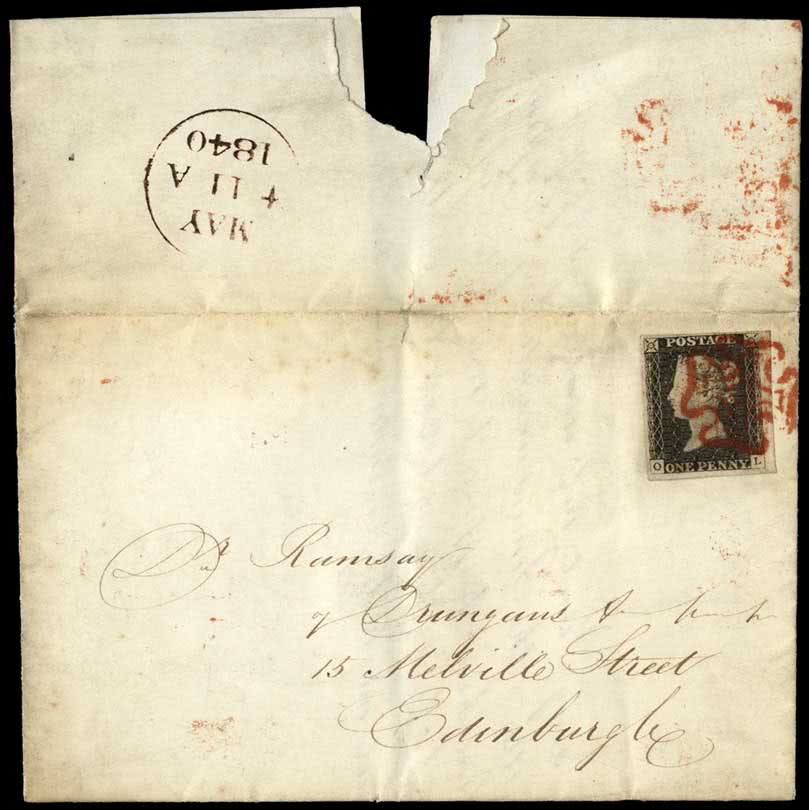 MAY
+ 11 A
1840
POSTAGE
O L
ONE PENNY
Dr Ramsay
of Drungans
15 Melville Street
Edinburgh